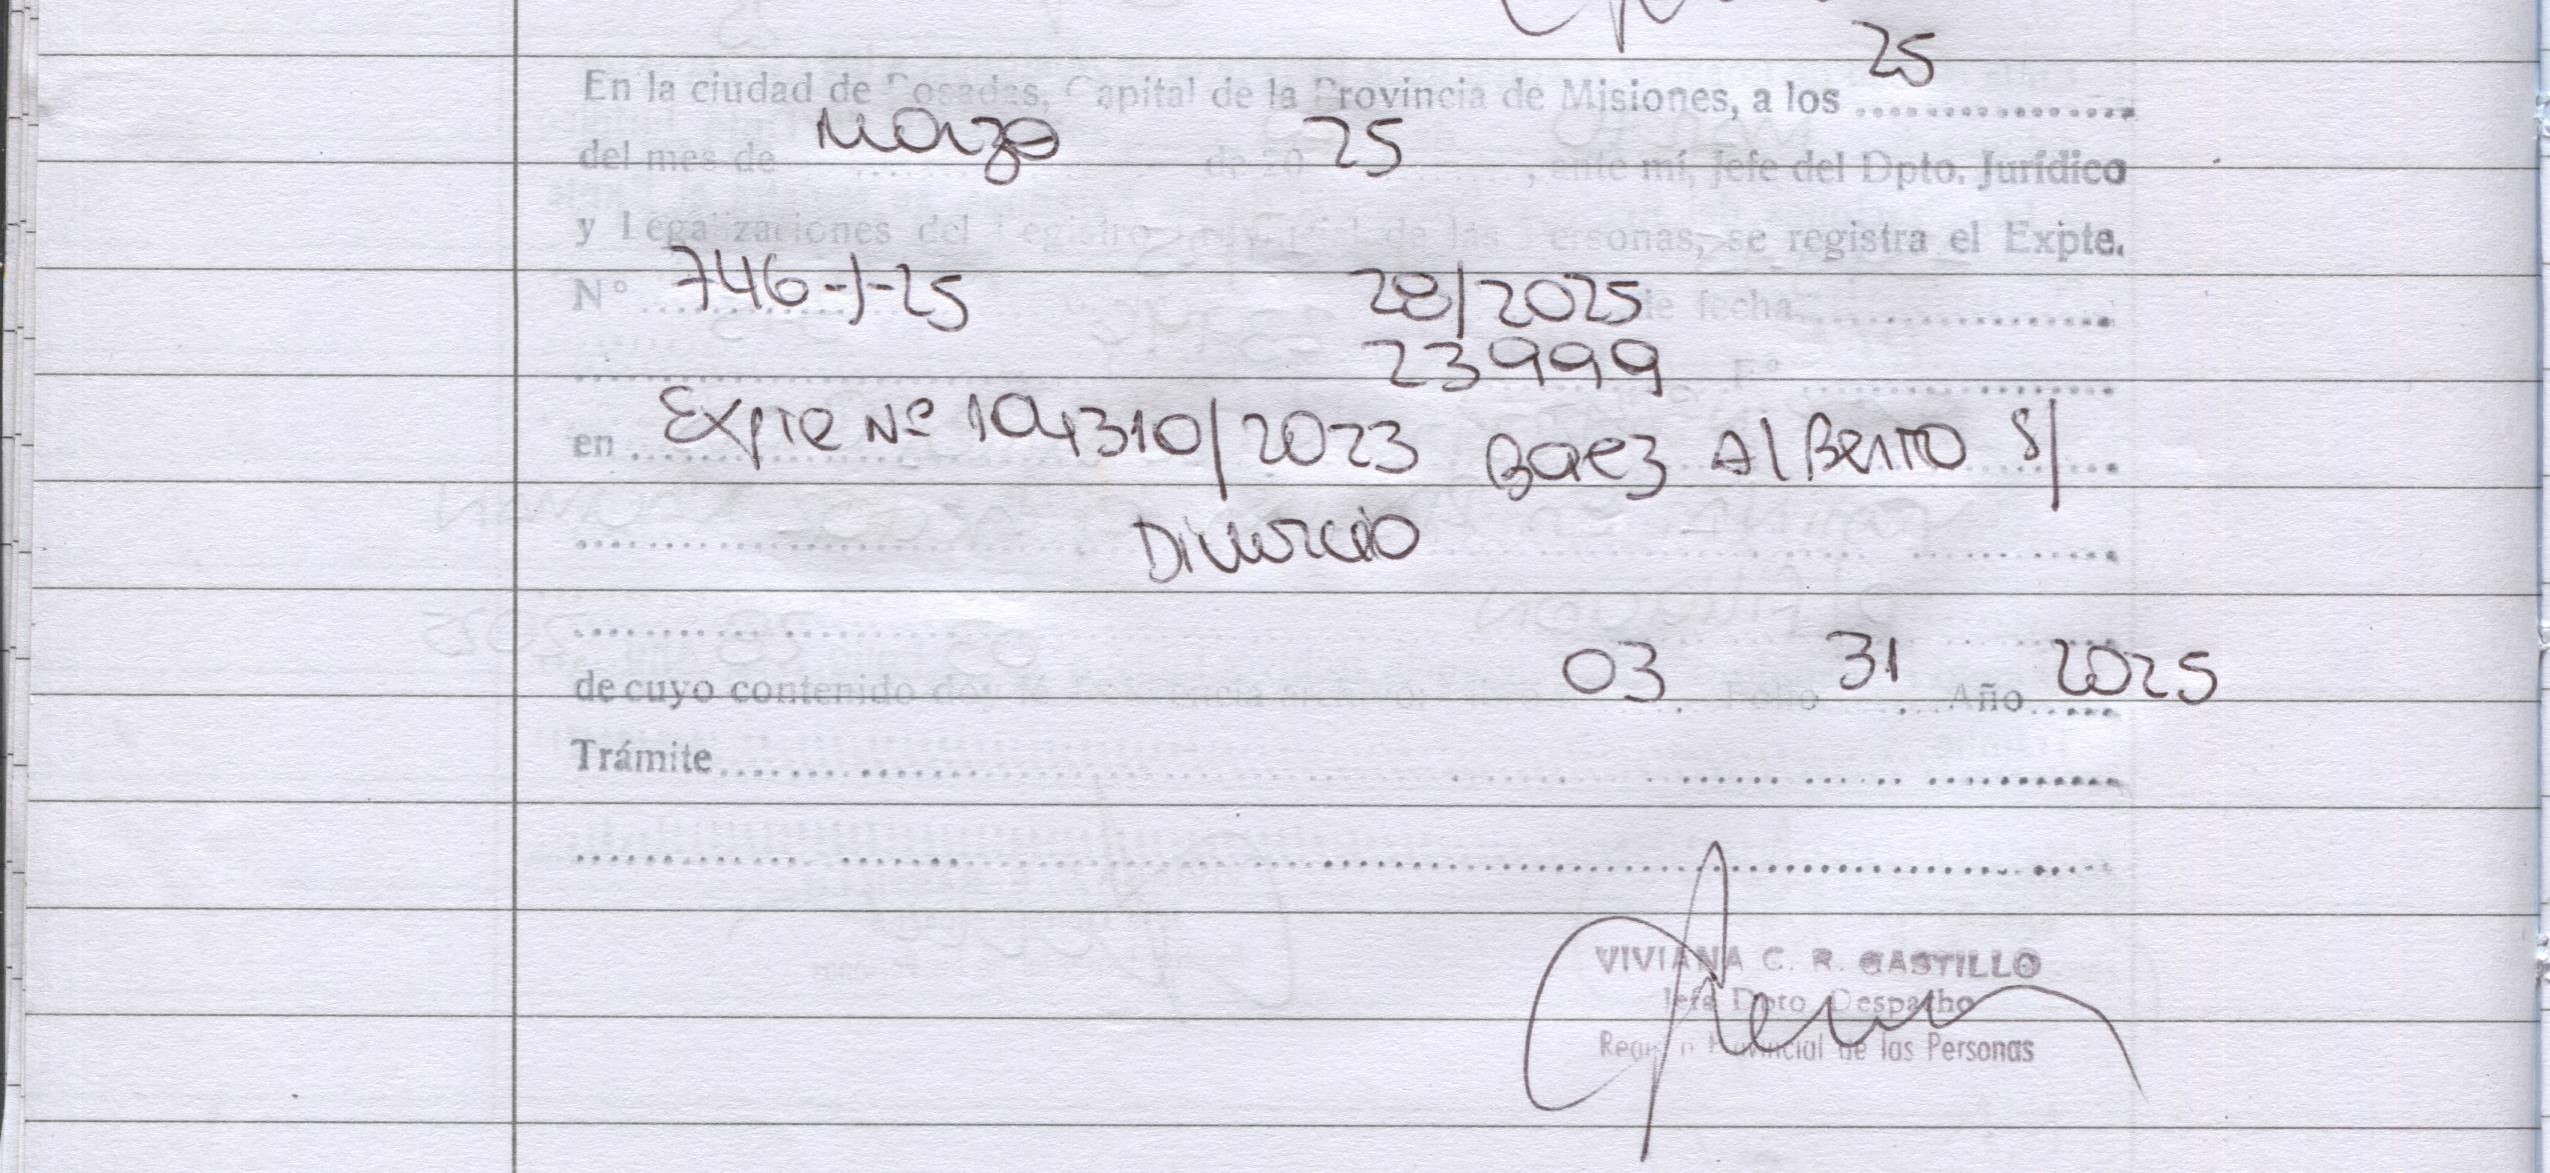 25
En la ciudad de Posadas, Capital de la Provincia de Misiones, a los
del mes de Marzo de 20 25, ante mí, Jefe del Dpto. Jurídico
y Legalizaciones del Registro de las Personas, se registra el Expte.
N° 746-1-25 28/2025 de fecha
23999 F°
en Expte Nº 104310/2023 Baez Alberto S/
Divorcio
de cuyo contenido doy 03 Folio 31 Año 2025
Trámite
VIVIANA C. R. CASTILLO
Jefa Dpto. Despacho
Registro Provincial de las Personas